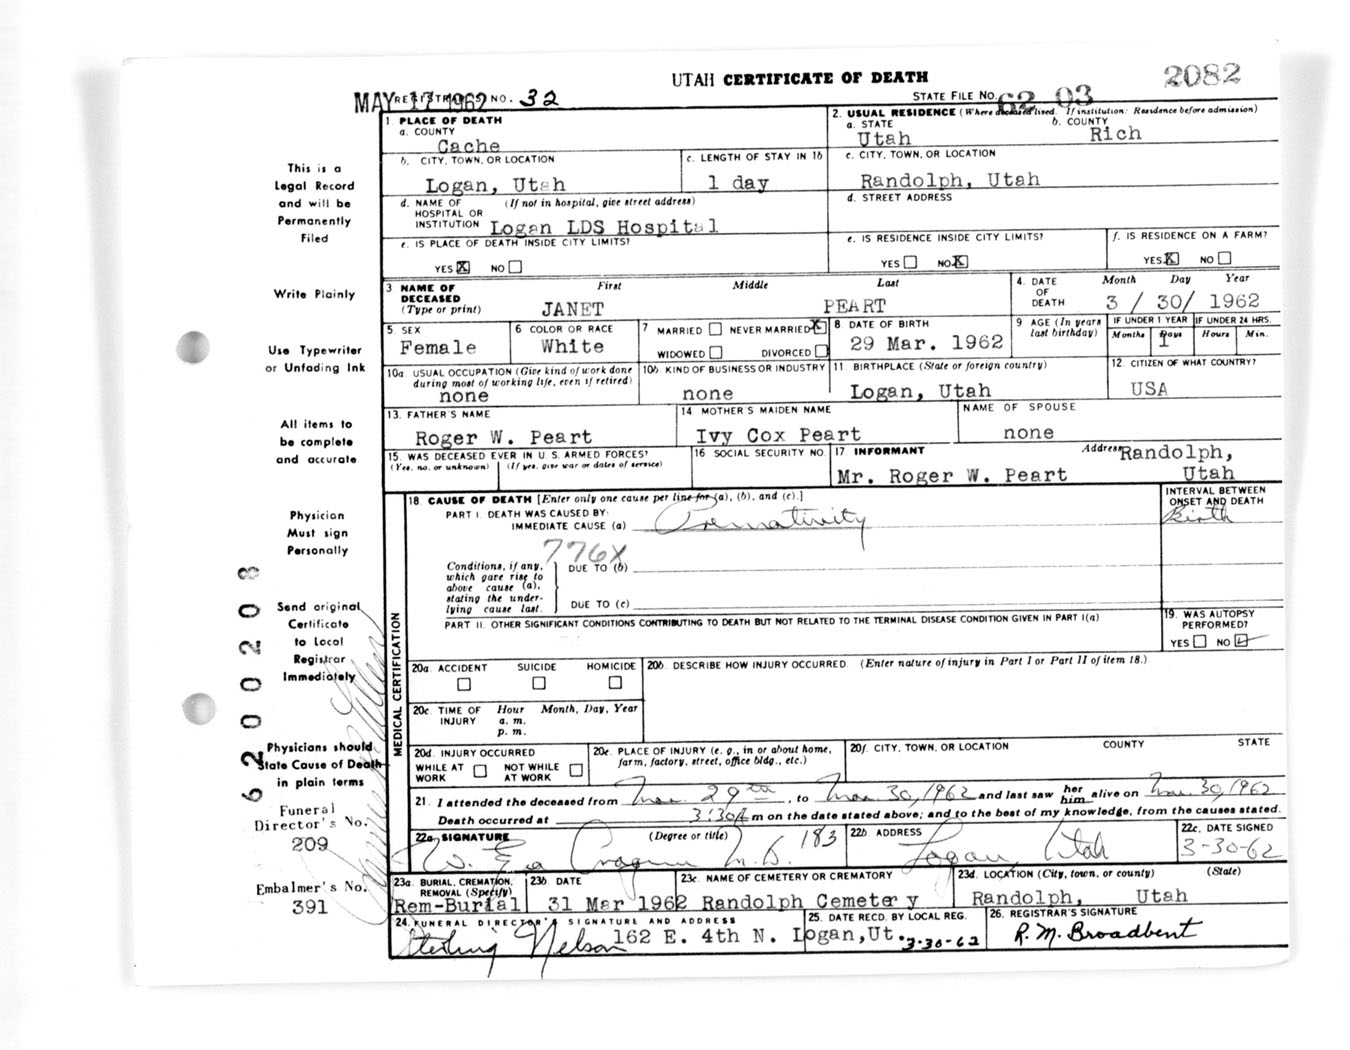 UTAH CERTIFICATE OF DEATH
2082
MAY 17 1962
REGISTRAR'S NO. 32
STATE FILE NO. 62 03
This is a
Legal Record
and will be
Permanently
Filed
Write Plainly
Use Typewriter
or Unfading Ink
All items to
be complete
and accurate
Physician
Must sign
Personally
Send original
Certificate
to Local
Registrar
Immediately
Physicians should
State Cause of Death
in plain terms
Funeral
Director's No.
209
Embalmer's No.
391
1 PLACE OF DEATH
a. COUNTY
Cache
2. USUAL RESIDENCE (Where deceased lived. If institution: Residence before admission)
a. STATE
Utah
b. COUNTY
Rich
b. CITY, TOWN, OR LOCATION
Logan, Utah
c. LENGTH OF STAY IN 1b
1 day
c. CITY, TOWN, OR LOCATION
Randolph, Utah
d. NAME OF HOSPITAL OR INSTITUTION (If not in hospital, give street address)
Logan LDS Hospital
d. STREET ADDRESS
e. IS PLACE OF DEATH INSIDE CITY LIMITS?
YES X NO
e. IS RESIDENCE INSIDE CITY LIMITS?
YES NO X
f. IS RESIDENCE ON A FARM?
YES X NO
3 NAME OF DECEASED (Type or print)
First Middle Last
JANET PEART
4. DATE OF DEATH
Month Day Year
3 / 30/ 1962
5. SEX
Female
6 COLOR OR RACE
White
7 MARRIED NEVER MARRIED X
WIDOWED DIVORCED
8 DATE OF BIRTH
29 Mar. 1962
9 AGE (In years last birthday)
IF UNDER 1 YEAR IF UNDER 24 HRS.
Months Days Hours Min.
1
10a. USUAL OCCUPATION (Give kind of work done during most of working life, even if retired)
none
10b. KIND OF BUSINESS OR INDUSTRY
none
11 BIRTHPLACE (State or foreign country)
Logan, Utah
12 CITIZEN OF WHAT COUNTRY?
USA
13. FATHER'S NAME
Roger W. Peart
14 MOTHER'S MAIDEN NAME
Ivy Cox Peart
NAME OF SPOUSE
none
15. WAS DECEASED EVER IN U. S. ARMED FORCES?
(Yes, no, or unknown) (If yes, give war or dates of service)
16 SOCIAL SECURITY NO.
17 INFORMANT
Mr. Roger W. Peart
Address Randolph,
Utah
MEDICAL CERTIFICATION
18. CAUSE OF DEATH [Enter only one cause per line for (a), (b), and (c).]
PART I. DEATH WAS CAUSED BY:
IMMEDIATE CAUSE (a) Prematurity
INTERVAL BETWEEN ONSET AND DEATH
Birth
776X
Conditions, if any,
which gave rise to
above cause (a),
stating the under-
lying cause last.
DUE TO (b)
DUE TO (c)
PART II. OTHER SIGNIFICANT CONDITIONS CONTRIBUTING TO DEATH BUT NOT RELATED TO THE TERMINAL DISEASE CONDITION GIVEN IN PART I(a)
19. WAS AUTOPSY PERFORMED?
YES NO ✓
20a. ACCIDENT SUICIDE HOMICIDE
20b. DESCRIBE HOW INJURY OCCURRED. (Enter nature of injury in Part I or Part II of item 18.)
20c. TIME OF INJURY
Hour Month, Day, Year
a. m.
p. m.
20d. INJURY OCCURRED
WHILE AT WORK NOT WHILE AT WORK
20e. PLACE OF INJURY (e. g., in or about home, farm, factory, street, office bldg., etc.)
20f. CITY, TOWN, OR LOCATION COUNTY STATE
21. I attended the deceased from Mar. 29th, to Mar. 30, 1962 and last saw her him alive on Mar. 30, 1962
Death occurred at 3:30 A m on the date stated above; and to the best of my knowledge, from the causes stated.
22a. SIGNATURE (Degree or title)
W. Ezra Cragun M.D. 183
22b. ADDRESS
Logan, Utah
22c. DATE SIGNED
3-30-62
23a. BURIAL, CREMATION, REMOVAL (Specify)
Rem-Burial
23b. DATE
31 Mar 1962
23c. NAME OF CEMETERY OR CREMATORY
Randolph Cemetery
23d. LOCATION (City, town, or county) (State)
Randolph, Utah
24. FUNERAL DIRECTOR'S SIGNATURE AND ADDRESS
Sterling Nelson 162 E. 4th N. Logan, Ut.
25. DATE RECD. BY LOCAL REG.
3-30-62
26. REGISTRAR'S SIGNATURE
R. M. Broadbent
62 00203